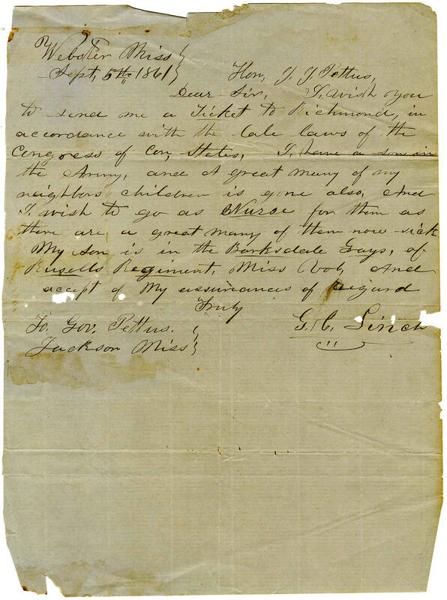 Webster Miss
Sept, 5th 1861
Hon, J. J. Pettus,
Dear Sir, I wish you
to send me a Ticket to Richmond, in
accordance with the late laws of the
Congress of Con, States, I have a son in
the Army, and A great many of my
neighbors children is gone also, And
I wish to go as Nurse for them as
there are a great many of them now sick
My Son is in the Barksdale Grays, of
Rusells Regiment, Miss Vols, And
accept of My assurances of Regard
Truly
G. C. Linch
To. Gov. Pettus.
Jackson Miss